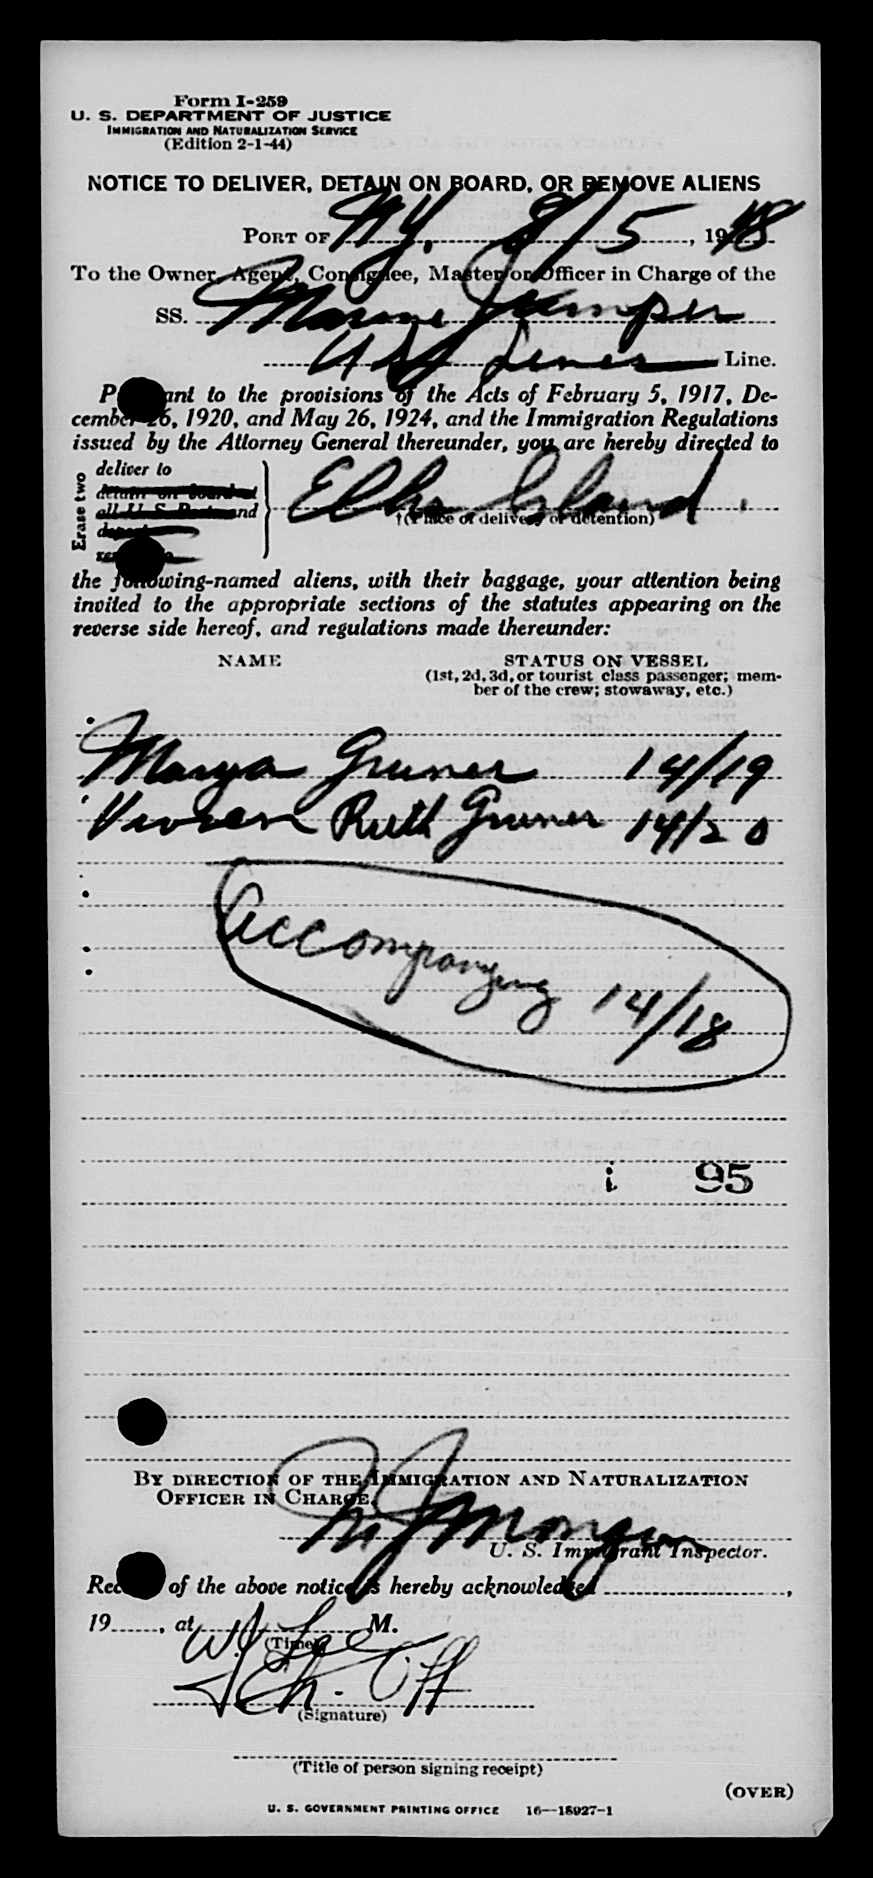 Form I-259
U. S. DEPARTMENT OF JUSTICE
IMMIGRATION AND NATURALIZATION SERVICE
(Edition 2-1-44)
NOTICE TO DELIVER, DETAIN ON BOARD, OR REMOVE ALIENS
PORT OF N.Y. 8/5, 1948
To the Owner, Agent, Consignee, Master or Officer in Charge of the
SS. Marine Jumper
U S Lines Line.
Pursuant to the provisions of the Acts of February 5, 1917, De-
cember 26, 1920, and May 26, 1924, and the Immigration Regulations
issued by the Attorney General thereunder, you are hereby directed to
Erase two
deliver to
detain on board at
all U. S. Ports and
deport
Ellis Island.
†(Place of delivery or detention)
the following-named aliens, with their baggage, your attention being
invited to the appropriate sections of the statutes appearing on the
reverse side hereof, and regulations made thereunder:
NAME STATUS ON VESSEL
(1st, 2d, 3d, or tourist class passenger; mem-
ber of the crew; stowaway, etc.)
Marya Gruner 14/19
Vivien Ruth Gruner 14/20
Accompanying 14/18
i 95
BY DIRECTION OF THE IMMIGRATION AND NATURALIZATION
OFFICER IN CHARGE.
U. S. Immigrant Inspector.
Receipt of the above notice is hereby acknowledged ,
19 , at M.
(Time)
W J Lee
Ch. Off
(Signature)
(Title of person signing receipt)
(OVER)
U. S. GOVERNMENT PRINTING OFFICE 16—18927-1